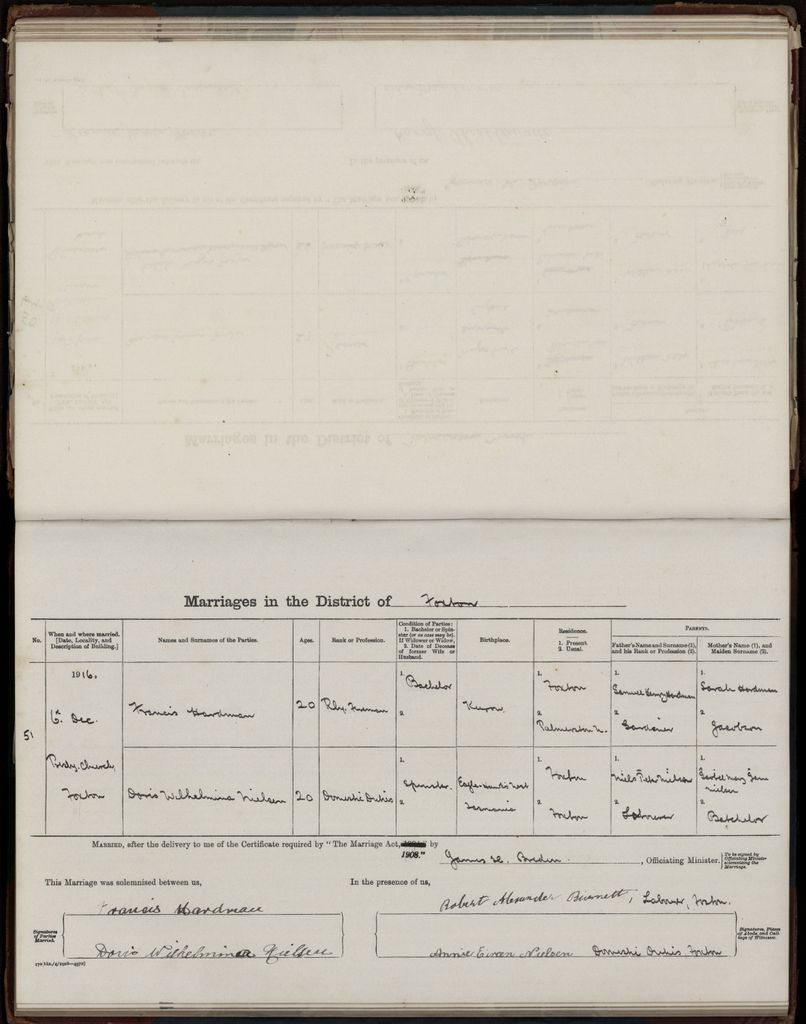 Marriages in the District of Foxton
No.
When and where married. [Date, Locality, and Description of Building.]
Names and Surnames of the Parties.
Ages.
Rank or Profession.
Condition of Parties: 1. Bachelor or Spinster (or as case may be). If Widower or Widow, 2. Date of Decease of former Wife or Husband.
Birthplace.
Residence. 1. Present. 2. Usual.
Parents.
Father's Name and Surname (1), and his Rank or Profession (2).
Mother's Name (1), and Maiden Surname (2).
51
1916.
6th Dec.
Presby. Church,
Foxton
Francis Hardman
20
Rly. Fireman
1. Bachelor
2.
Kurow
1. Foxton
2. Palmerston N.
1. Samuel Henry Hardman
2. Gardener
1. Sarah Hardman
2. Jacobson
Doris Wilhelmina Nielsen
20
Domestic Duties
1. Spinster
2.
Tasmania
1. Foxton
2. Foxton
1. Niels Peter Nielsen
2. Labourer
1. Jane Nielsen
2. Batchelor
Married, after the delivery to me of the Certificate required by "The Marriage Act, 1908." by
James H. , Officiating Minister.
[To be signed by Officiating Minister solemnizing the Marriage.]
This Marriage was solemnised between us,
In the presence of us,
Signatures of Parties Married.
Francis Hardman
Doris Wilhelmina Nielsen
Robert Alexander Burnett, Labourer, Foxton.
Annie Nielsen Domestic Duties, Foxton
Signatures, Places of Abode, and Callings of Witnesses.